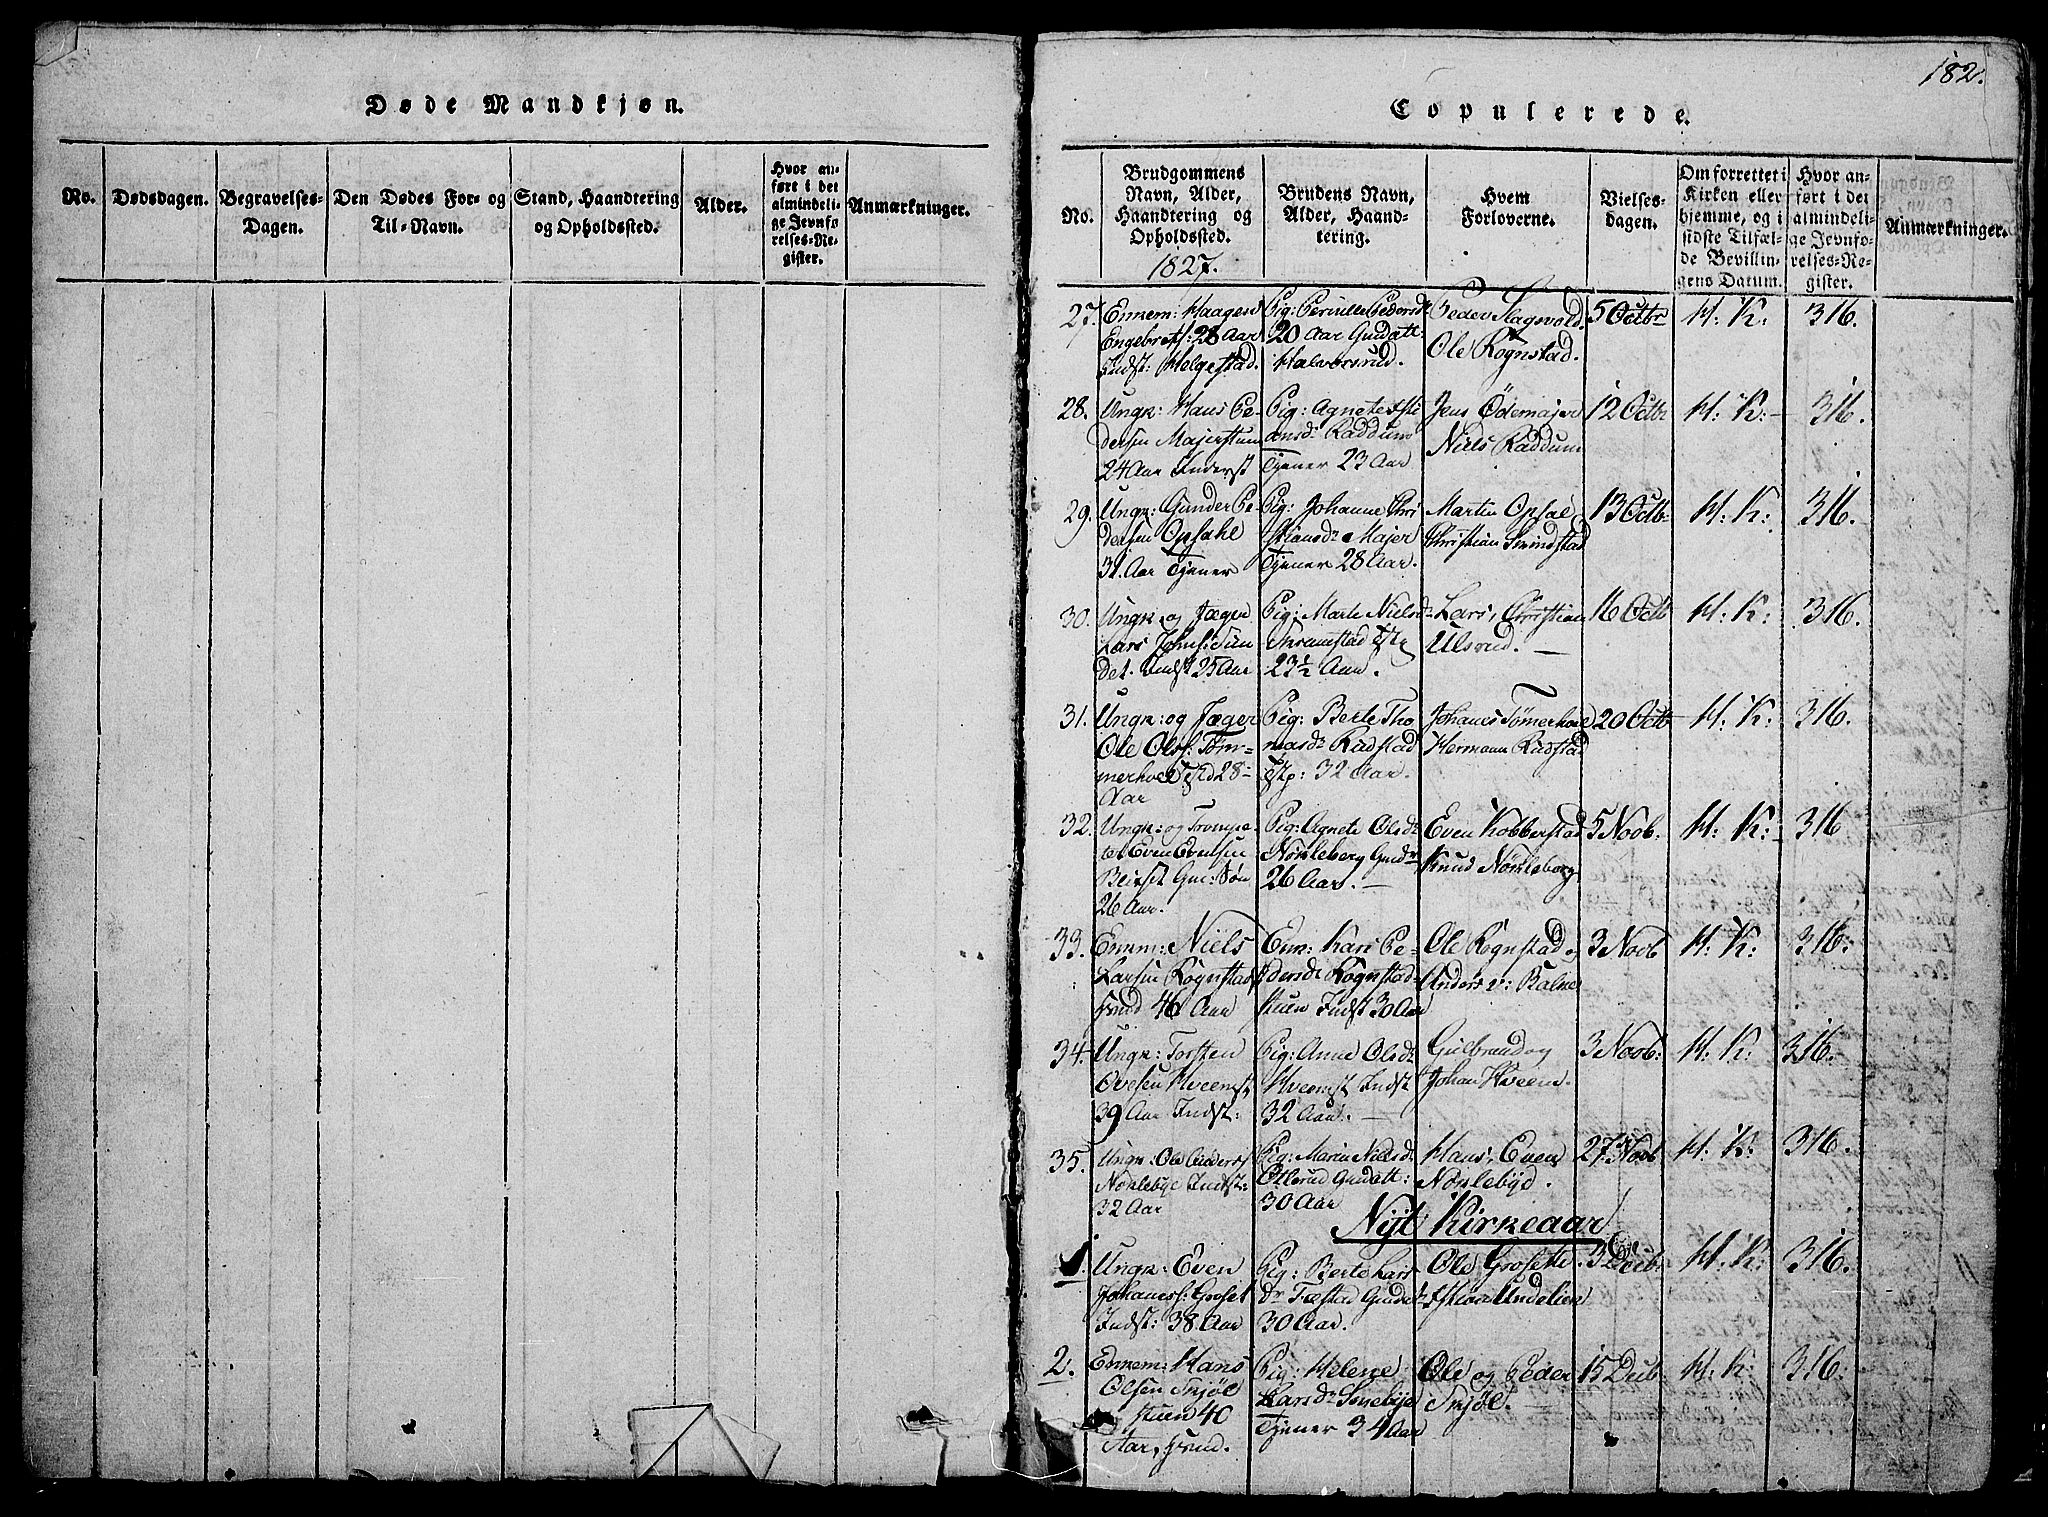 182.
Døde Mandkjøn.
No.
Dødsdagen.
Begravelses-
Dagen.
Den Dødes For- og
Til-Navn.
Stand, Haandtering
og Opholdssted.
Alder.
Hvor an-
ført i det
almindeli-
ge Jevnfø-
relses-Re-
gister.
Anmærkninger.
Copulerede.
No.
Brudgommens
Navn, Alder,
Haandtering og
Opholdssted.
Brudens Navn,
Alder, Haand-
tering.
Hvem
Forloverne.
Vielses-
dagen.
Om forrettet i
Kirken eller
hjemme, og i
sidste Tilfæl-
de Bevillin-
gens Datum.
Hvor an-
ført i det
almindeli-
ge Jevnfø-
relses-Re-
gister.
Anmærkninger.
1827.
27.
Enkem: Haagen
Engebrets: 28 Aar
Indst: Helgestad.
Pig: Pernille Pedersd
20 Aar Gudatt:
Halvorsrud.
Peder Slagsvold
Ole Rognstad.
5 Octbr
H: K:
316.
28.
Ungk: Hans Pe-
dersen Majerstun
24 Aar Inderst
Pig: Agnete
ansdr Raddum
Tjener 23 Aar
Jens Ødemajer
Niels Raddum
12 Octb
H: K:
316.
29.
Ungk: Gunder Pe-
dersen Opsahl
31. Aar Tjener
Pig: Johanne Chri
stiansdr Majer
Tjener 28 Aar.
Martin Opsal
Christian Smidstad
13 Octb
H: K:
316.
30.
Ungk og Jæger
Lars Johns: Sun
det. Indst 25 Aar
Pig: Marte Nielsdr
Skramstad
23½ Aar.
Lars, Christian
Ulsrud.
16 Octb
H: K:
316.
31.
Ungk: og Jæger
Ole Ols: Tøm-
merhoel 28
Aar
Pig: Berte Tho
masdr Rudstad
32 Aar.
Johanes Tømerhoel
Hermann Rudstad
20 Octb
H: K:
316.
32.
Ungk: og Trompe
ter Even Evensen
Blixet Gm: Søn
26 Aar.
Pig: Agnete Olsdr
Nørkleberg Gmdr
26 Aar.
Even Kobberstad
Knud Nørkleberg
5 Novb.
H: K:
316
33.
Emm: Niels
Larsen Rognstad
hmd 46 Aar
Enk: Kari Pe-
dersdr Rognstad-
stuen Indst 30 Aar
Ole Rognstad og
Anders v: Balne
3 Novb
H: K:
316:
34.
Ungk: Torsten
Ovesen Hveemst
39 Aar Indst:
Pig: Anne Olsdr
Hveemst Indst
32 Aar.
Gulbrand og
Johan Hveem.
3 Novb:
H: K:
316.
35.
Ungk: Ole Anders:
Norlebye Indst:
32 Aar
Pig: Marin Nielsdr
Otterud Gudatt:
30 Aar
Hans, Even
Norlebyd.
27 Novb
H: K:
316.
Nyt Kirkeaar
1.
Ungk: Even
Johaness: Groset
Indst: 38 Aar
Pig: Berte Lars
dr Fæstad Gmdr
30 Aar.
Ole Grosette
Undelien
3 Decb.
H: K:
316.
2.
Enkem: Hans
Olsen Snjøl
stuen 40
Aar, hmd.
Pig: Helene
Larsdr Sorlebye
Tjener 34 Aar
Ole og Peder
Snjøl.
15 Decb
H: K:
316.